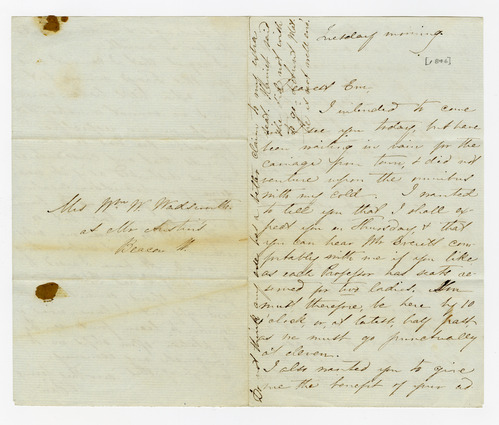 Mrs Wm W. Wadsworth
at Mr Austin's
Beacon St.
Tuesday morning.
[1846]
Dearest Em,
I intended to come
& see you today, but have
been waiting in vain for the
carriage from town, & did not
venture upon the omnibus
with my cold. I wanted
to tell you that I shall ex
pect you on Thursday, & that
you can hear Mr Everett com-
fortably with me if you like
as each Professor has seats re-
served for two ladies. You
must therefore, be here by 10
o'clock, or, at latest, half past
as we must go punctually
at eleven.
I also wanted you to give
me the benefit of your ad
has a better claim to any extra
seat. Harriet said
she did not wish
to go
is not well one.